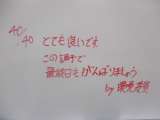 40/40 とても良いです
この調子で
最終日もがんばりましょう
by 環境委員